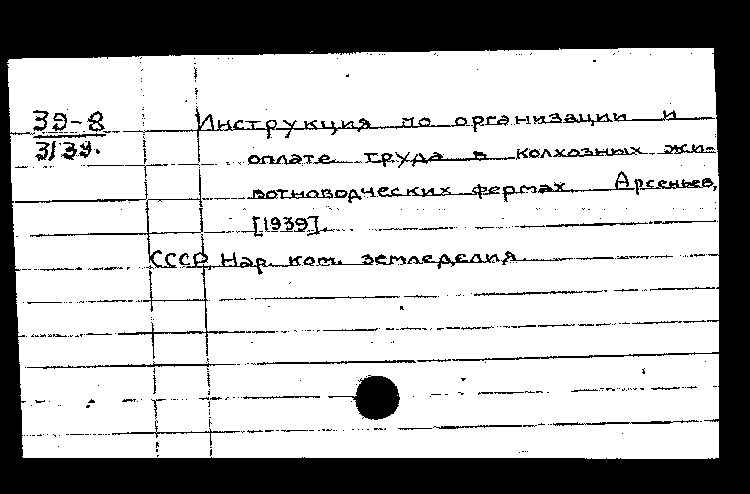 39-8
3139.
Инструкция по организации и
оплате труда в колхозных жи-
вотноводческих фермах. Арсеньев,
[1939].
СССР. Нар. ком. земледелия.